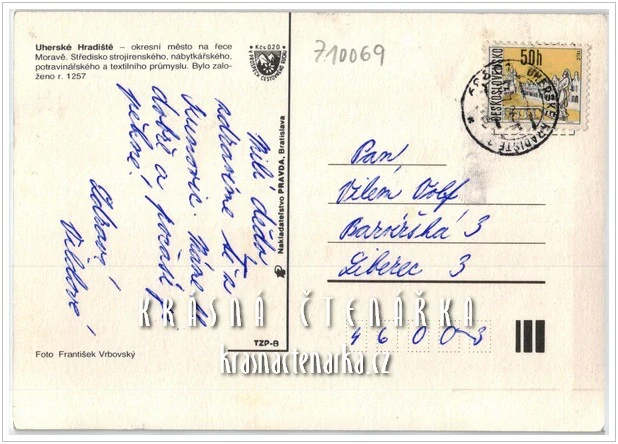 Uherské Hradiště – okresní město na řece
Moravě. Středisko strojírenského, nábytkářského,
potravinářského a textilního průmyslu. Bylo zalo-
ženo r. 1257
Kčs 0,20
710069
50h
ČESKOSLOVENSKO
UHERSKÉ HRADIŠTĚ
Milí děda
zdravíme tě z
Kunovic. Máme se
dobře a počasí je
pěkné!
Zdraví
Vildové!
Nakladatelství PRAVDA, Bratislava
TZP-B
Pan
Vilém Volf
Barvířská 3
Liberec 3
46003
KRÁSNÁ ČTENÁŘKA
krasnactenarka.cz
Foto František Vrbovský